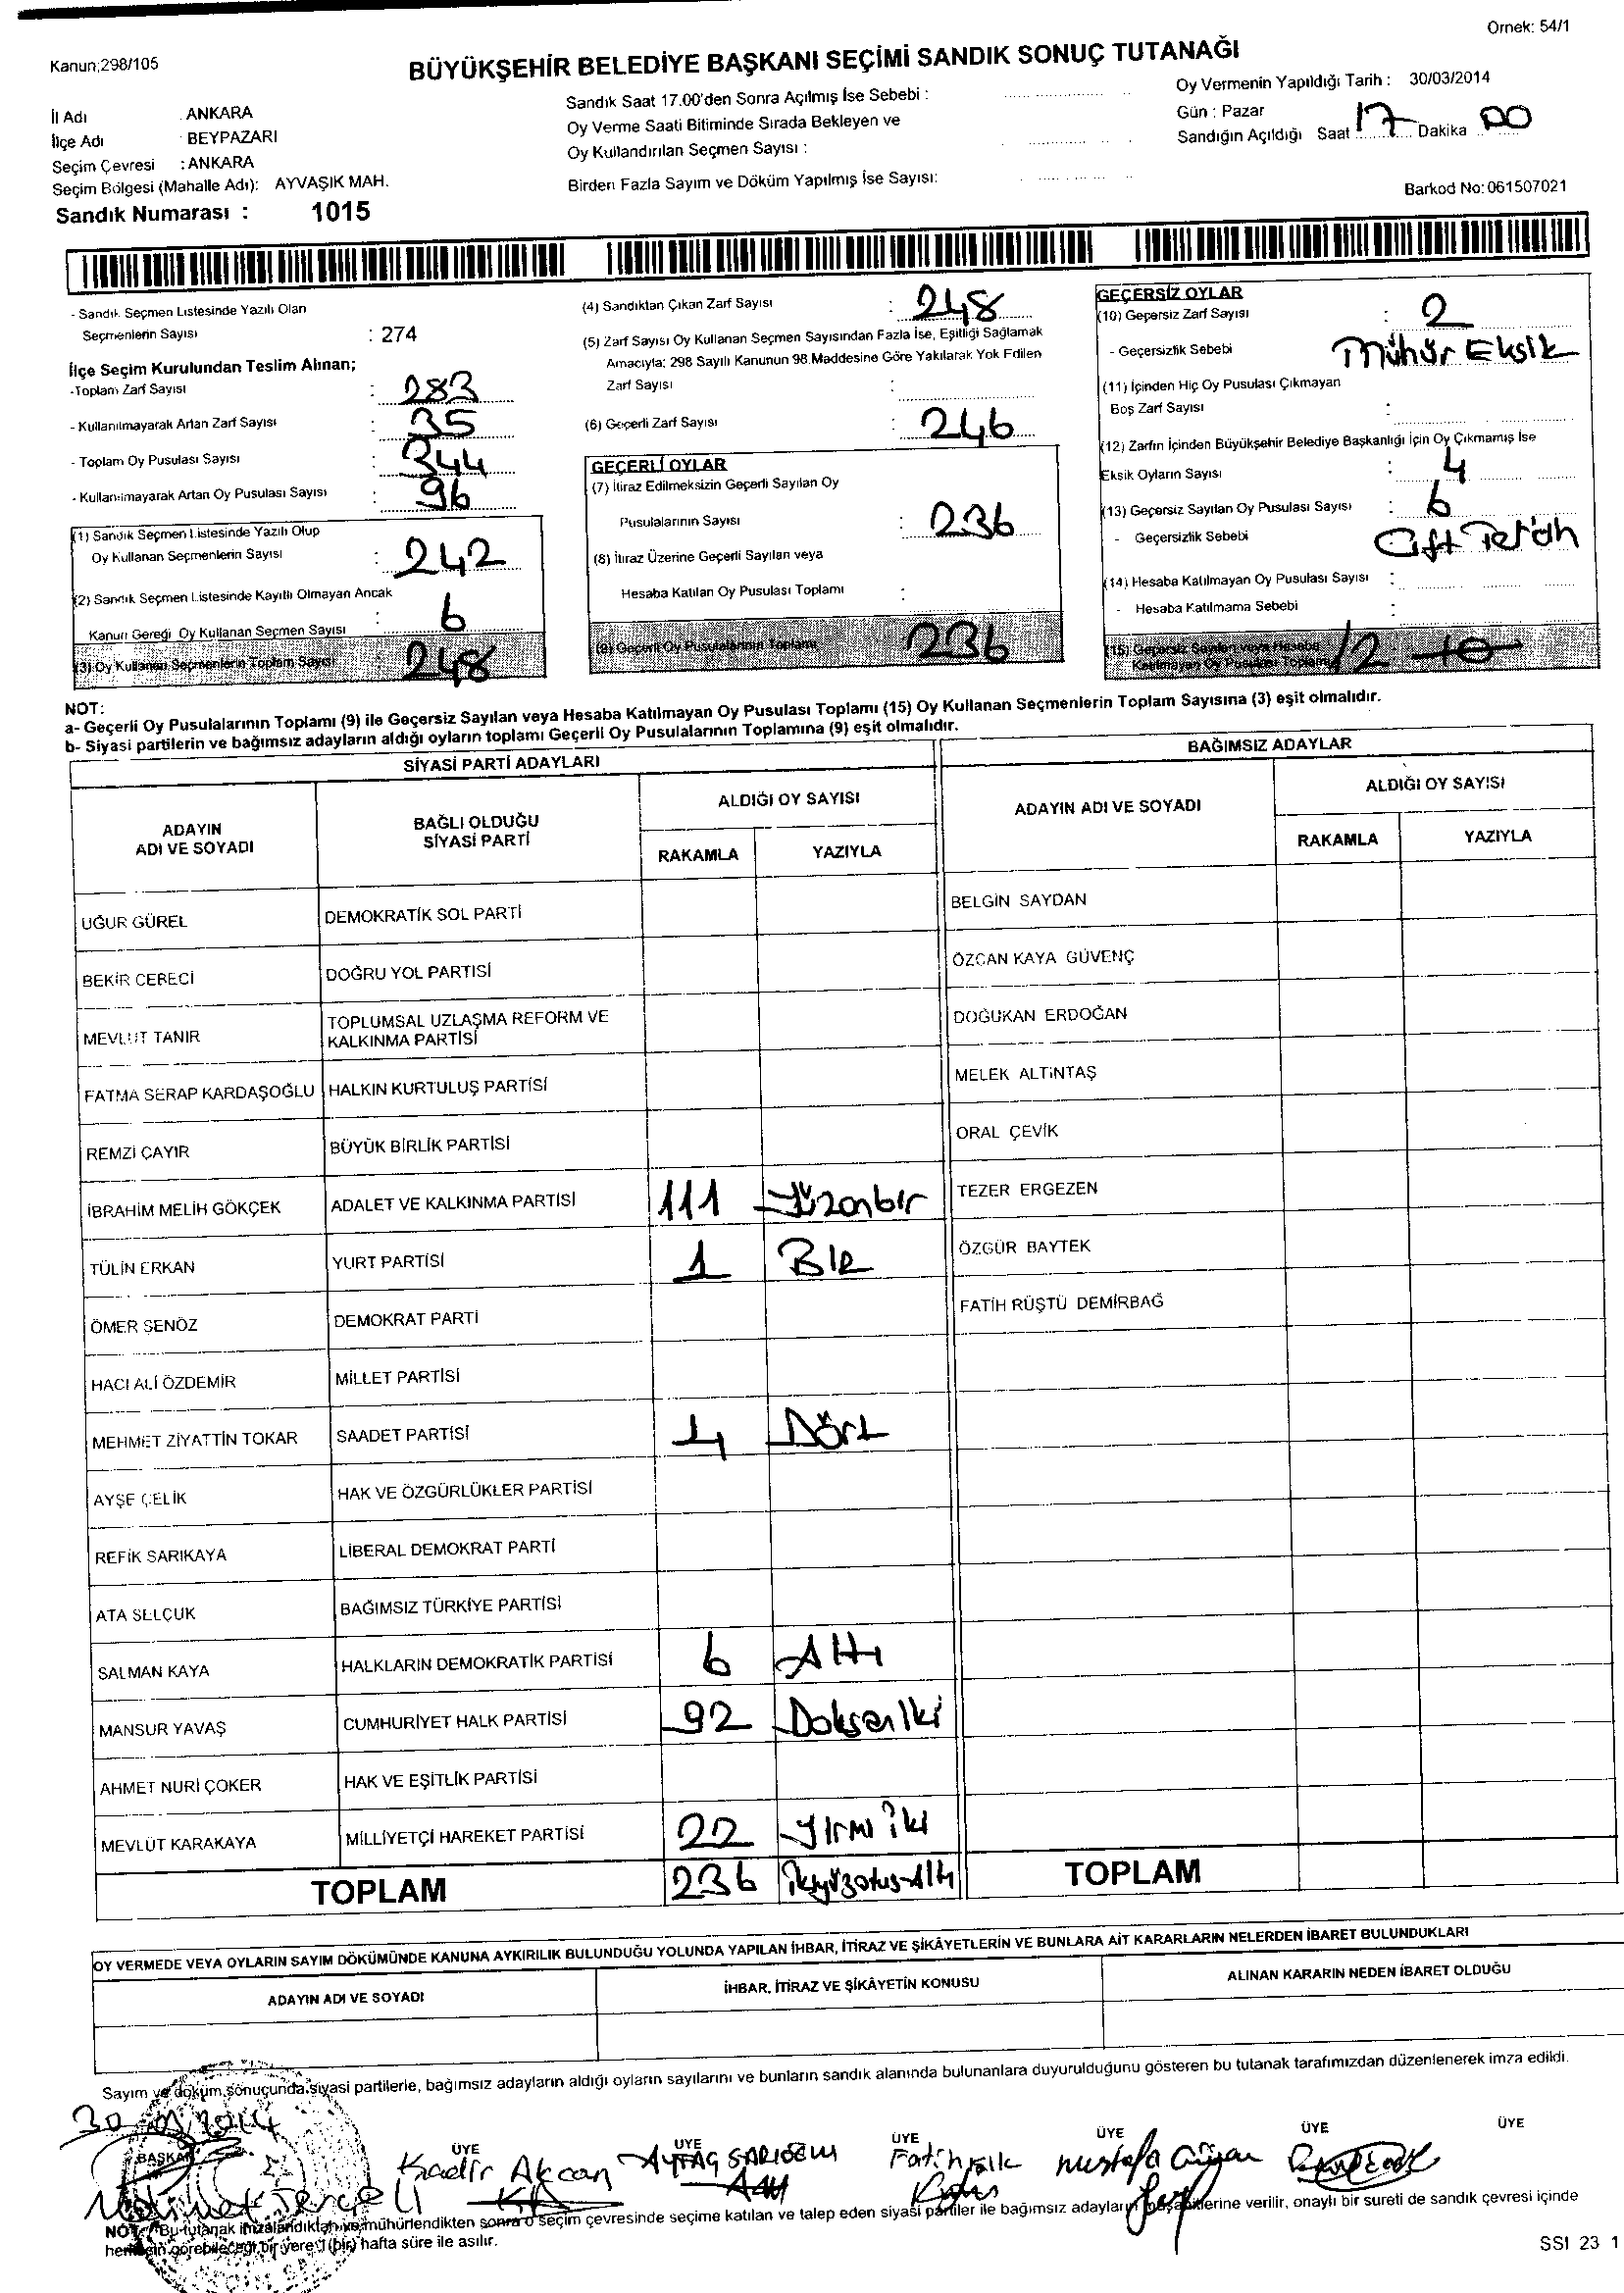 Ornek: 54/1
Kanun;298/105
BÜYÜKŞEHİR BELEDİYE BAŞKANI SEÇİMİ SANDIK SONUÇ TUTANAĞI
İl Adı : ANKARA
İlçe Adı : BEYPAZARI
Seçim Çevresi : ANKARA
Seçim Bölgesi (Mahalle Adı): AYVAŞIK MAH.
Sandık Numarası : 1015
Sandık Saat 17.00'den Sonra Açılmış İse Sebebi :
Oy Verme Saati Bitiminde Sırada Bekleyen ve
Oy Kullandırılan Seçmen Sayısı :
Birden Fazla Sayım ve Döküm Yapılmış İse Sayısı:
Oy Vermenin Yapıldığı Tarih : 30/03/2014
Gün : Pazar
Sandığın Açıldığı Saat 17 Dakika 00
Barkod No: 061507021
- Sandık Seçmen Listesinde Yazılı Olan
Seçmenlerin Sayısı : 274
İlçe Seçim Kurulundan Teslim Alınan;
-Toplam Zarf Sayısı : 283
- Kullanılmayarak Artan Zarf Sayısı : 35
- Toplam Oy Pusulası Sayısı : 344
- Kullanılmayarak Artan Oy Pusulası Sayısı : 96
(1) Sandık Seçmen Listesinde Yazılı Olup
Oy Kullanan Seçmenlerin Sayısı : 242
(2) Sandık Seçmen Listesinde Kayıtlı Olmayan Ancak
Kanun Gereği Oy Kullanan Seçmen Sayısı : 6
(3) Oy Kullanan Seçmenlerin Toplam Sayısı 248
(4) Sandıktan Çıkan Zarf Sayısı : 248
(5) Zarf Sayısı Oy Kullanan Seçmen Sayısından Fazla İse, Eşitliği Sağlamak
Amacıyla; 298 Sayılı Kanunun 98.Maddesine Göre Yakılarak Yok Edilen
Zarf Sayısı :
(6) Geçerli Zarf Sayısı : 246
GEÇERLİ OYLAR
(7) İtiraz Edilmeksizin Geçerli Sayılan Oy
Pusulalarının Sayısı : 236
(8) İtiraz Üzerine Geçerli Sayılan veya
Hesaba Katılan Oy Pusulası Toplamı :
(9) Geçerli Oy Pusulalarının Toplamı 236
GEÇERSİZ OYLAR
(10) Geçersiz Zarf Sayısı : 2
- Geçersizlik Sebebi Mühür Eksik
(11) İçinden Hiç Oy Pusulası Çıkmayan
Boş Zarf Sayısı :
(12) Zarfın İçinden Büyükşehir Belediye Başkanlığı İçin Oy Çıkmamış İse
Eksik Oyların Sayısı : 4
(13) Geçersiz Sayılan Oy Pusulası Sayısı : 6
- Geçersizlik Sebebi Çift Tercih
(14) Hesaba Katılmayan Oy Pusulası Sayısı :
- Hesaba Katılmama Sebebi :
(15) Geçersiz Sayılan veya Hesaba
Katılmayan Oy Pusulası Toplamı 12 10
NOT:
a- Geçerli Oy Pusulalarının Toplamı (9) ile Geçersiz Sayılan veya Hesaba Katılmayan Oy Pusulası Toplamı (15) Oy Kullanan Seçmenlerin Toplam Sayısına (3) eşit olmalıdır.
b- Siyasi partilerin ve bağımsız adayların aldığı oyların toplamı Geçerli Oy Pusulalarının Toplamına (9) eşit olmalıdır.
SİYASİ PARTİ ADAYLARI
ADAYIN ADI VE SOYADI BAĞLI OLDUĞU SİYASİ PARTİ ALDIĞI OY SAYISI
RAKAMLA YAZIYLA
UĞUR GÜREL DEMOKRATİK SOL PARTİ
BEKİR CERECİ DOĞRU YOL PARTİSİ
MEVLUT TANIR TOPLUMSAL UZLAŞMA REFORM VE KALKINMA PARTİSİ
FATMA SERAP KARDAŞOĞLU HALKIN KURTULUŞ PARTİSİ
REMZİ ÇAYIR BÜYÜK BİRLİK PARTİSİ
İBRAHİM MELİH GÖKÇEK ADALET VE KALKINMA PARTİSİ 111 Yüzonbir
TÜLİN ERKAN YURT PARTİSİ 1 BİR
ÖMER ŞENÖZ DEMOKRAT PARTİ
HACI ALİ ÖZDEMİR MİLLET PARTİSİ
MEHMET ZİYATTİN TOKAR SAADET PARTİSİ 4 Dört
AYŞE ÇELİK HAK VE ÖZGÜRLÜKLER PARTİSİ
REFİK SARIKAYA LİBERAL DEMOKRAT PARTİ
ATA SELÇUK BAĞIMSIZ TÜRKİYE PARTİSİ
SALMAN KAYA HALKLARIN DEMOKRATİK PARTİSİ 6 Altı
MANSUR YAVAŞ CUMHURİYET HALK PARTİSİ 92 Doksaniki
AHMET NURİ ÇOKER HAK VE EŞİTLİK PARTİSİ
MEVLÜT KARAKAYA MİLLİYETÇİ HAREKET PARTİSİ 22 Yirmi iki
TOPLAM 236 ikiyüzotuzAltı
BAĞIMSIZ ADAYLAR
ADAYIN ADI VE SOYADI ALDIĞI OY SAYISI
RAKAMLA YAZIYLA
BELGİN SAYDAN
ÖZCAN KAYA GÜVENÇ
DOĞUKAN ERDOĞAN
MELEK ALTINTAŞ
ORAL ÇEVİK
TEZER ERGEZEN
ÖZGÜR BAYTEK
FATİH RÜŞTÜ DEMİRBAĞ
TOPLAM
OY VERMEDE VEYA OYLARIN SAYIM DÖKÜMÜNDE KANUNA AYKIRILIK BULUNDUĞU YOLUNDA YAPILAN İHBAR, İTİRAZ VE ŞİKÂYETLERİN VE BUNLARA AİT KARARLARIN NELERDEN İBARET BULUNDUKLARI
ADAYIN ADI VE SOYADI İHBAR, İTİRAZ VE ŞİKÂYETİN KONUSU ALINAN KARARIN NEDEN İBARET OLDUĞU
Sayım ve döküm sonucunda siyasi partilerle, bağımsız adayların aldığı oyların sayılarını ve bunların sandık alanında bulunanlara duyurulduğunu gösteren bu tutanak tarafımızdan düzenlenerek imza edildi.
30/03/2014
BAŞKAN ÜYE ÜYE ÜYE ÜYE ÜYE ÜYE
Kadir Akcan Fatih Mustafa
NOT: Bu tutanak imzalandıktan ve mühürlendikten sonra o seçim çevresinde seçime katılan ve talep eden siyasi partiler ile bağımsız adayların müşahitlerine verilir, onaylı bir sureti de sandık çevresi içinde
herkesin görebileceği bir yere 1 (bir) hafta süre ile asılır.
SSI 23 1